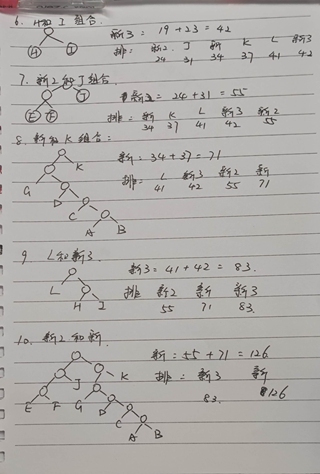 6. H和I组合.
新3 = 19 + 23 = 42
H I
排: 新2 J 新 K L 新3
24 31 34 37 41 42
7. 新2和J组合.
J
新2 = 24 + 31 = 55
E F
排: 新 K L 新3 新2
34 37 41 42 55
8. 新和K组合:
K
新: 34 + 37 = 71
G
排: L 新3 新2 新
41 42 55 71
D
C
A B
9. L和新3.
新3 = 41 + 42 = 83.
L
排 新2 新 新3
H I
55 71 83.
10. 新2和新.
新: 55 + 71 = 126
J K
排: 新3 新
E F G D
83. 126
C
A B